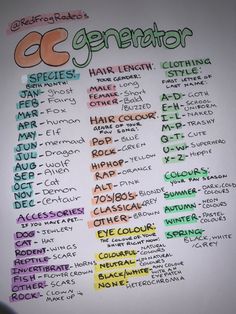 @RedFrogRodeo's
OC generator
SPECIES:
BIRTH MONTH!
JAN - Ghost
FEB - Fairy
MAR - Fox
APR - Human
MAY - Elf
JUN - mermaid
JUL - Dragon
AUG - wolf
SEP - Alien
OCT - Cat
NOV - Demon
DEC - Centaur
ACCESSORIES!
IF YOU HAVE A PET...
DOG - JEWELRY
CAT - HAT
RODENT - WINGS
REPTILE - SCARF
INVERTIBRATE - HORNS
FISH - FLOWER CROWN
OTHER - SCARS
ROCK - CLOWN
MAKE UP
HAIR LENGTH:
YOUR GENDER!
MALE - Long
FEMALE - Short
OTHER - Bald
/BUZZED
HAIR COLOUR:
GENRE OF YOUR
FAV SONG!
POP - BLUE
ROCK - GREEN
HIPHOP - YELLOW
RAP - ORANGE
ALT - PINK
70S/80S - BLONDE
CLASSICAL - GREY
OTHER - BROWN
EYE COLOUR:
THE COLOUR OF YOUR
SHIRT RIGHT NOW!
COLOURFUL - NATURAL COLOURS
NEUTRAL - UN NATURAL COLOURS
BLACK/WHITE - ANY COLOUR WITH AN EYE PATCH
NONE: HETEROCHROMIA
CLOTHING
STYLE:
FIRST LETTER OF
LAST NAME!
A-D - GOTH
E-H - SCHOOL UNIFORM
I-L - NAKED
M-P - TRASHY
Q-T - CUTE
U-W - SUPERHERO
X-Z - HIPPIE
COLOURS:
YOUR FAV SEASON
SUMMER - DARK, COLD COLOURS
AUTUMN - NEON COLOURS
WINTER - PASTEL COLOURS
SPRING -
BLACK/WHITE
/GREY